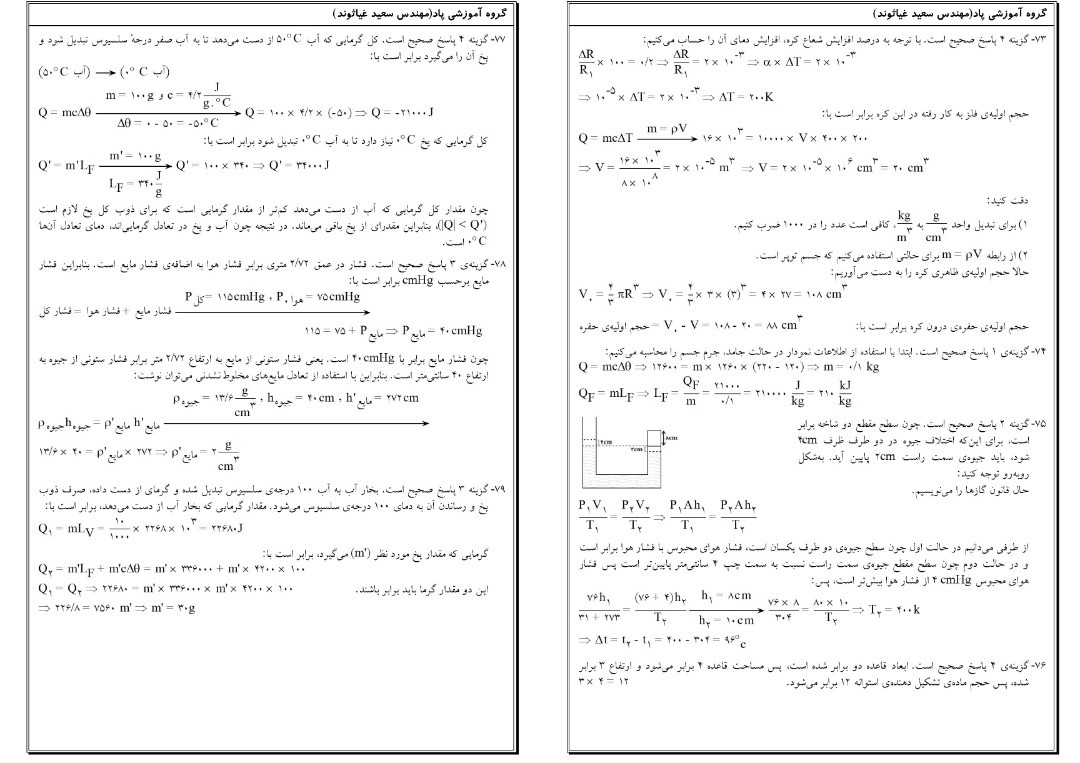 گروه آموزشی پاد(مهندس سعید غیاثوند)
۷۳- گزینه ۴ پاسخ صحیح است. با توجه به درصد افزایش شعاع کره، افزایش دمای آن را حساب می‌کنیم:
ΔR/R۱ × ۱۰۰ = ۰/۲ ⇒ ΔR/R۱ = ۲ × ۱۰^-۳ ⇒ α × ΔT = ۲ × ۱۰^-۳
⇒ ۱۰^-۵ × ΔT = ۲ × ۱۰^-۳ ⇒ ΔT = ۲۰۰K
حجم اولیه‌ی فلز به کار رفته در این کره برابر است با:
Q = mcΔT m = ρV → ۱۶ × ۱۰^۳ = ۱۰۰۰۰ × V × ۴۰۰ × ۲۰۰
⇒ V = ۱۶ × ۱۰^۳ / ۸ × ۱۰^۸ = ۲ × ۱۰^-۵ m^۳ ⇒ V = ۲ × ۱۰^-۵ × ۱۰^۶ cm^۳ = ۲۰ cm^۳
دقت کنید:
۱) برای تبدیل واحد g/cm^۳ به kg/m^۳، کافی است عدد را در ۱۰۰۰ ضرب کنیم.
۲) از رابطه m = ρV برای حالتی استفاده می‌کنیم که جسم توپر است.
حالا حجم اولیه‌ی ظاهری کره را به دست می‌آوریم:
V۰ = ۴/۳ πR^۳ ⇒ V۰ = ۴/۳ × ۳ × (۳)^۳ = ۴ × ۲۷ = ۱۰۸ cm^۳
حجم اولیه‌ی حفره‌ی درون کره برابر است با: حجم اولیه‌ی حفره = V۰ - V = ۱۰۸ - ۲۰ = ۸۸ cm^۳
۷۴- گزینه‌ی ۱ پاسخ صحیح است. ابتدا با استفاده از اطلاعات نمودار در حالت جامد، جرم جسم را محاسبه می‌کنیم:
Q = mcΔθ ⇒ ۱۲۶۰۰ = m × ۱۲۶۰ × (۲۲۰ - ۱۲۰) ⇒ m = ۰/۱ kg
QF = mLF ⇒ LF = QF/m = ۲۱۰۰۰/۰/۱ = ۲۱۰۰۰۰ J/kg = ۲۱۰ kJ/kg
۷۵- گزینه ۲ پاسخ صحیح است. چون سطح مقطع دو شاخه برابر
است، برای این‌که اختلاف جیوه در دو طرف ظرف ۴cm
شود، باید جیوه‌ی سمت راست ۲cm پایین آید. به‌شکل
روبه‌رو توجه کنید:
حال قانون گازها را می‌نویسیم.
۲cm
۲cm
۸cm
P۱V۱/T۱ = P۲V۲/T۲ ⇒ P۱Ah۱/T۱ = P۲Ah۲/T۲
از طرفی می‌دانیم در حالت اول چون سطح جیوه‌ی دو طرف یکسان است، فشار هوای محبوس با فشار هوا برابر است
و در حالت دوم چون سطح مقطع جیوه‌ی سمت راست نسبت به سمت چپ ۴ سانتی‌متر پایین‌تر است پس فشار
هوای محبوس ۴ cmHg از فشار هوا بیش‌تر است، پس:
۷۶h۱/۳۱ + ۲۷۳ = (۷۶ + ۴)h۲/T۲ h۱ = ۸cm h۲ = ۱۰cm → ۷۶ × ۸/۳۰۴ = ۸۰ × ۱۰/T۲ ⇒ T۲ = ۴۰۰k
⇒ Δt = t۲ - t۱ = ۴۰۰ - ۳۰۴ = ۹۶°c
۷۶- گزینه‌ی ۴ پاسخ صحیح است. ابعاد قاعده دو برابر شده است، پس مساحت قاعده ۴ برابر می‌شود و ارتفاع ۳ برابر
شده، پس حجم ماده‌ی تشکیل دهنده‌ی استوانه ۱۲ برابر می‌شود. ۳ × ۴ = ۱۲
گروه آموزشی پاد(مهندس سعید غیاثوند)
۷۷- گزینه ۴ پاسخ صحیح است. کل گرمایی که آب ۵۰°C از دست می‌دهد تا به آب صفر درجهٔ سلسیوس تبدیل شود و
یخ آن را می‌گیرد برابر است با:
(آب ۵۰°C) → (آب ۰°C)
Q = mcΔθ m = ۱۰۰g و c = ۴/۲ J/g.°C Δθ = ۰ - ۵۰ = -۵۰°C → Q = ۱۰۰ × ۴/۲ × (-۵۰) ⇒ Q = -۲۱۰۰۰J
کل گرمایی که یخ ۰°C نیاز دارد تا به آب ۰°C تبدیل شود برابر است با:
Q' = m'LF m' = ۱۰۰g LF = ۳۴۰ J/g → Q' = ۱۰۰ × ۳۴۰ ⇒ Q' = ۳۴۰۰۰J
چون مقدار کل گرمایی که آب از دست می‌دهد کم‌تر از مقدار گرمایی است که برای ذوب کل یخ لازم است
(|Q| < Q')، بنابراین مقدرای از یخ باقی می‌ماند. در نتیجه چون آب و یخ در تعادل گرمایی‌اند، دمای تعادل آن‌ها
۰°C است.
۷۸- گزینه‌ی ۳ پاسخ صحیح است. فشار در عمق ۲/۷۲ متری برابر فشار هوا به اضافه‌ی فشار مایع است. بنابراین فشار
مایع برحسب cmHg برابر است با:
فشار مایع + فشار هوا = فشار کل P کل = ۱۱۵cmHg , P۰ هوا = ۷۵cmHg →
۱۱۵ = ۷۵ + P مایع ⇒ P مایع = ۴۰cmHg
چون فشار مایع برابر با ۴۰cmHg است. یعنی فشار ستونی از مایع به ارتفاع ۲/۷۲ متر برابر فشار ستونی از جیوه به
ارتفاع ۴۰ سانتی‌متر است. بنابراین با استفاده از تعادل مایع‌های مخلوط نشدنی می‌توان نوشت:
ρ جیوه h جیوه = ρ' مایع h' مایع ρ جیوه = ۱۳/۶ g/cm^۳ , h جیوه = ۴۰cm , h' مایع = ۲۷۲cm →
۱۳/۶ × ۴۰ = ρ' مایع × ۲۷۲ ⇒ ρ' مایع = ۲ g/cm^۳
۷۹- گزینه ۳ پاسخ صحیح است. بخار آب به آب ۱۰۰ درجه‌ی سلسیوس تبدیل شده و گرمای از دست داده، صرف ذوب
یخ و رساندن آن به دمای ۱۰۰ درجه‌ی سلسیوس می‌شود. مقدار گرمایی که بخار آب از دست می‌دهد، برابر است با:
Q۱ = mLV = ۱۰/۱۰۰۰ × ۲۲۶۸ × ۱۰^۳ = ۲۲۶۸۰J
گرمایی که مقدار یخ مورد نظر (m') می‌گیرد، برابر است با:
Q۲ = m'LF + m'cΔθ = m' × ۳۳۶۰۰۰ + m' × ۴۲۰۰ × ۱۰۰
این دو مقدار گرما باید برابر باشند. Q۱ = Q۲ ⇒ ۲۲۶۸۰ = m' × ۳۳۶۰۰۰ × m' × ۴۲۰۰ × ۱۰۰
⇒ ۲۲۶/۸ = ۷۵۶۰ m' ⇒ m' = ۳۰g